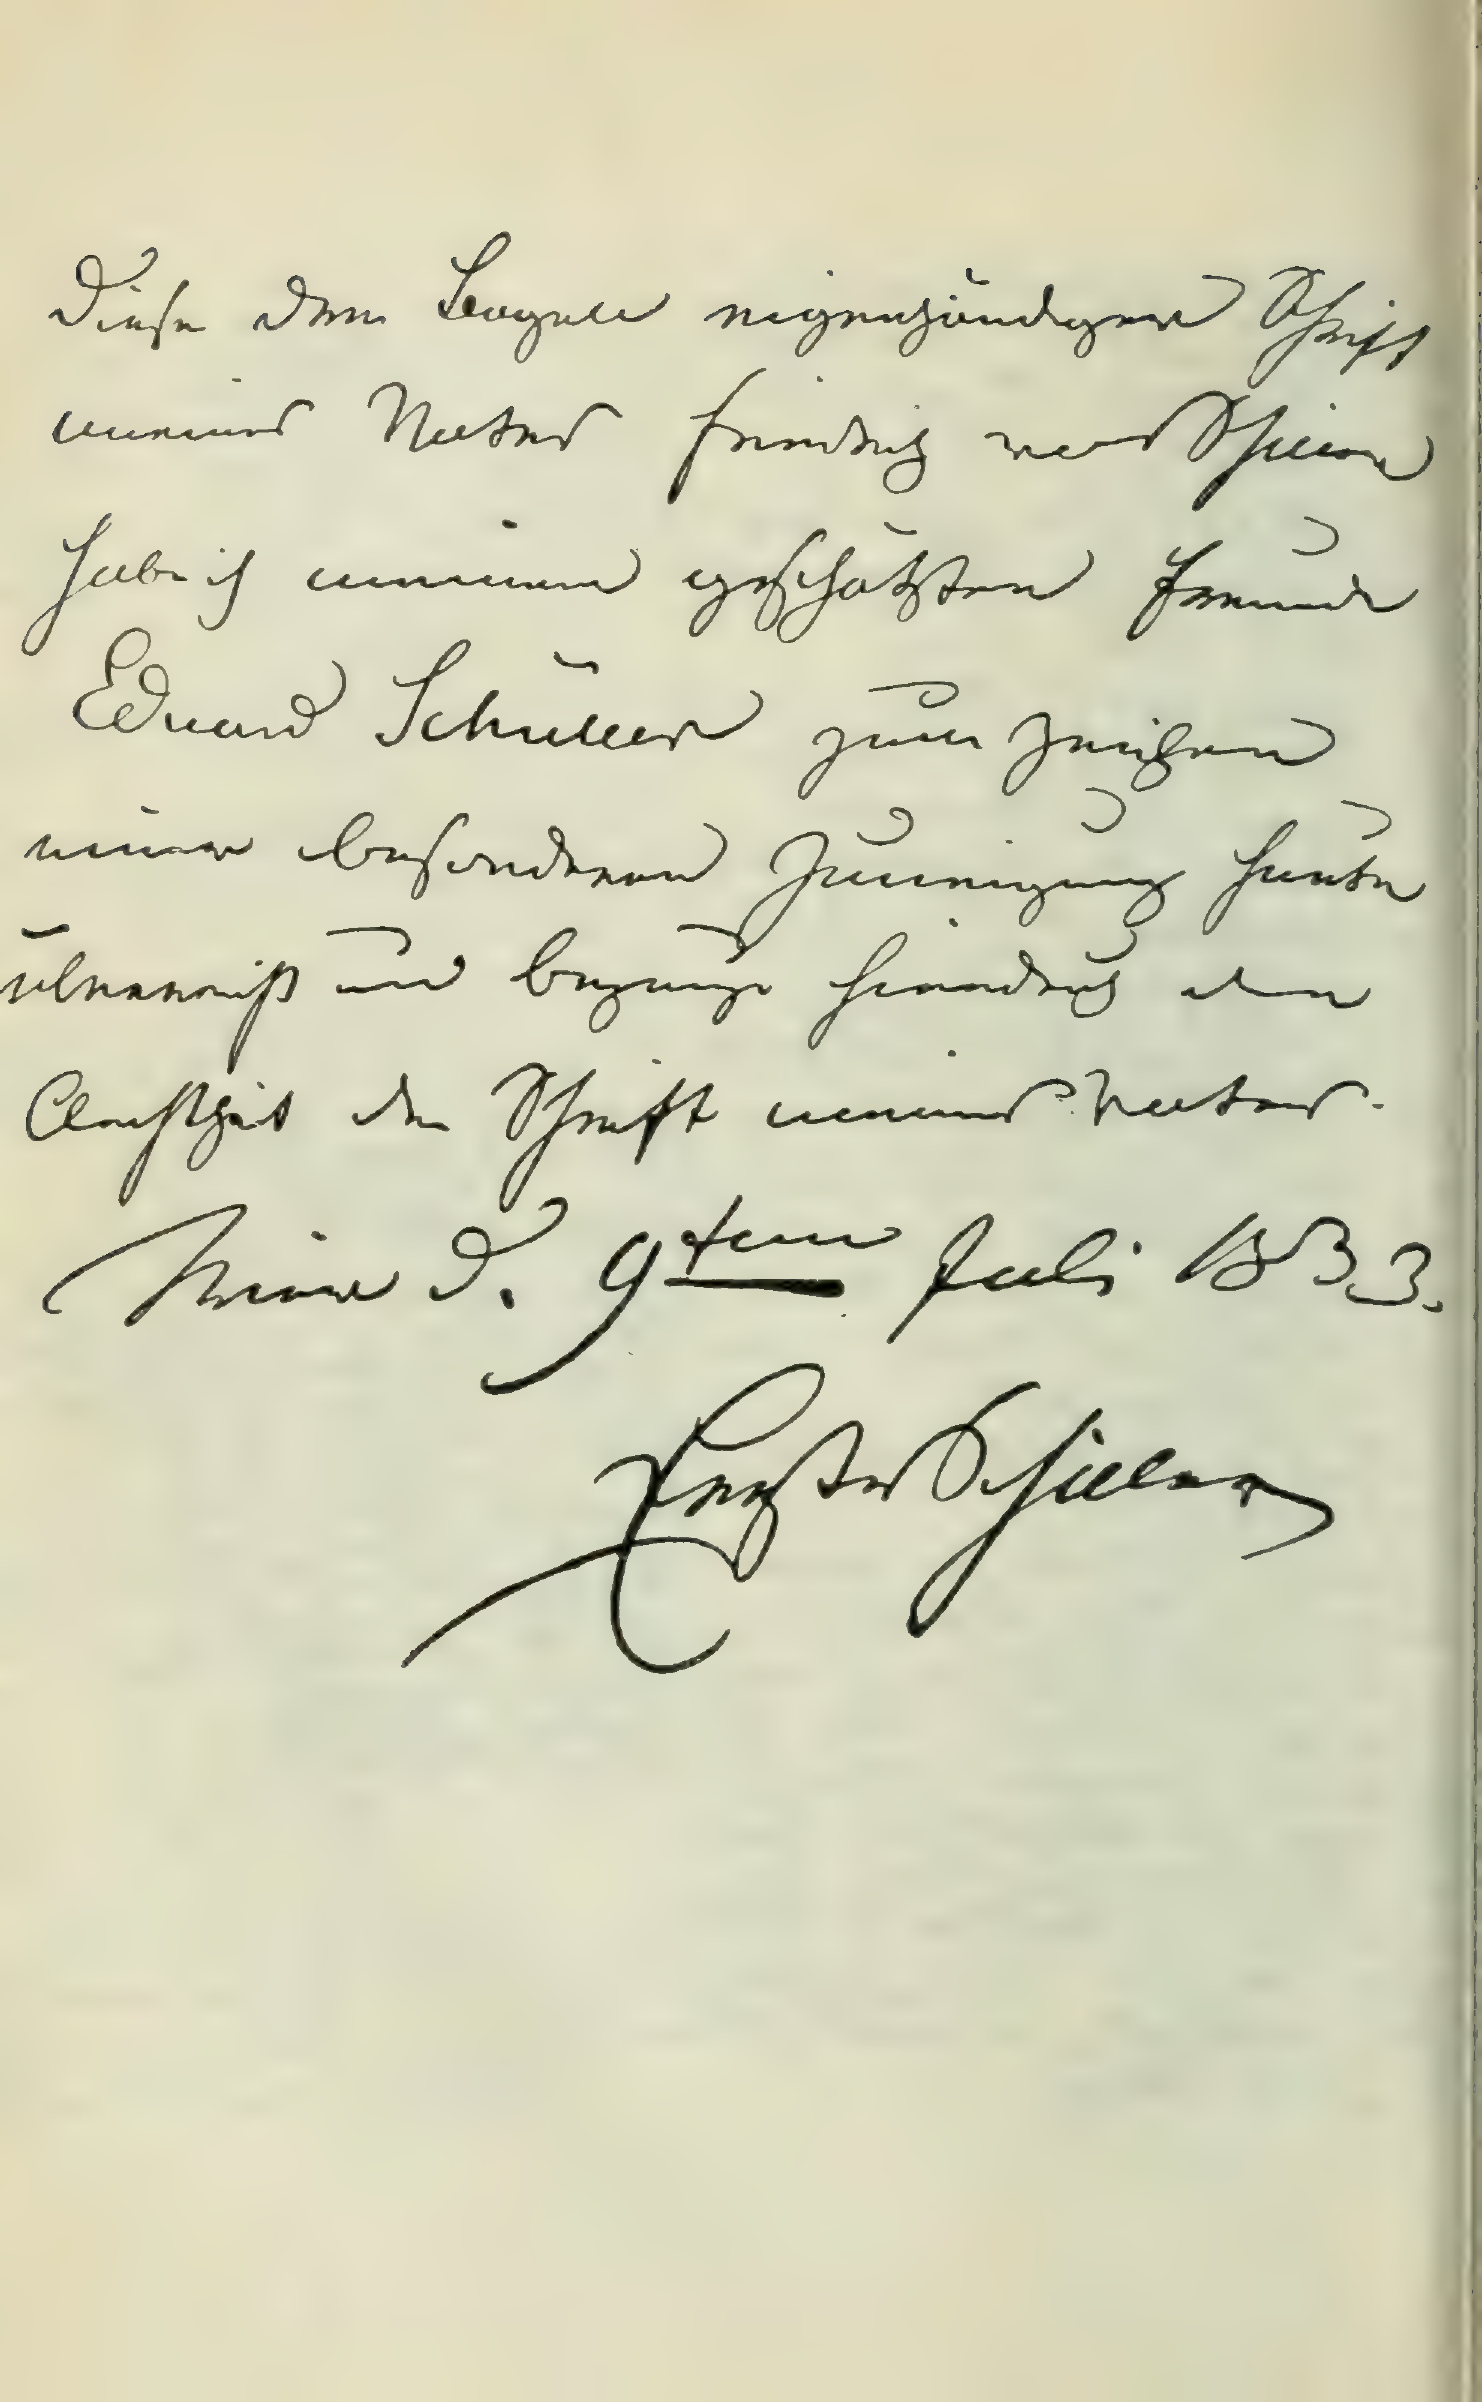 Diese drei Bogen eigenhändiger Schrift
meines Vaters Friedrich von Schiller
habe ich meinem geschätzten Freunde
Eduard Schüller zum Zeichen
meiner besonderen Zuneigung heute
überreicht und bezeuge hierdurch die
Aechtheit der Schrift meines Vaters.
Trier d. 9ten Juli 1833.
Ernst v Schiller